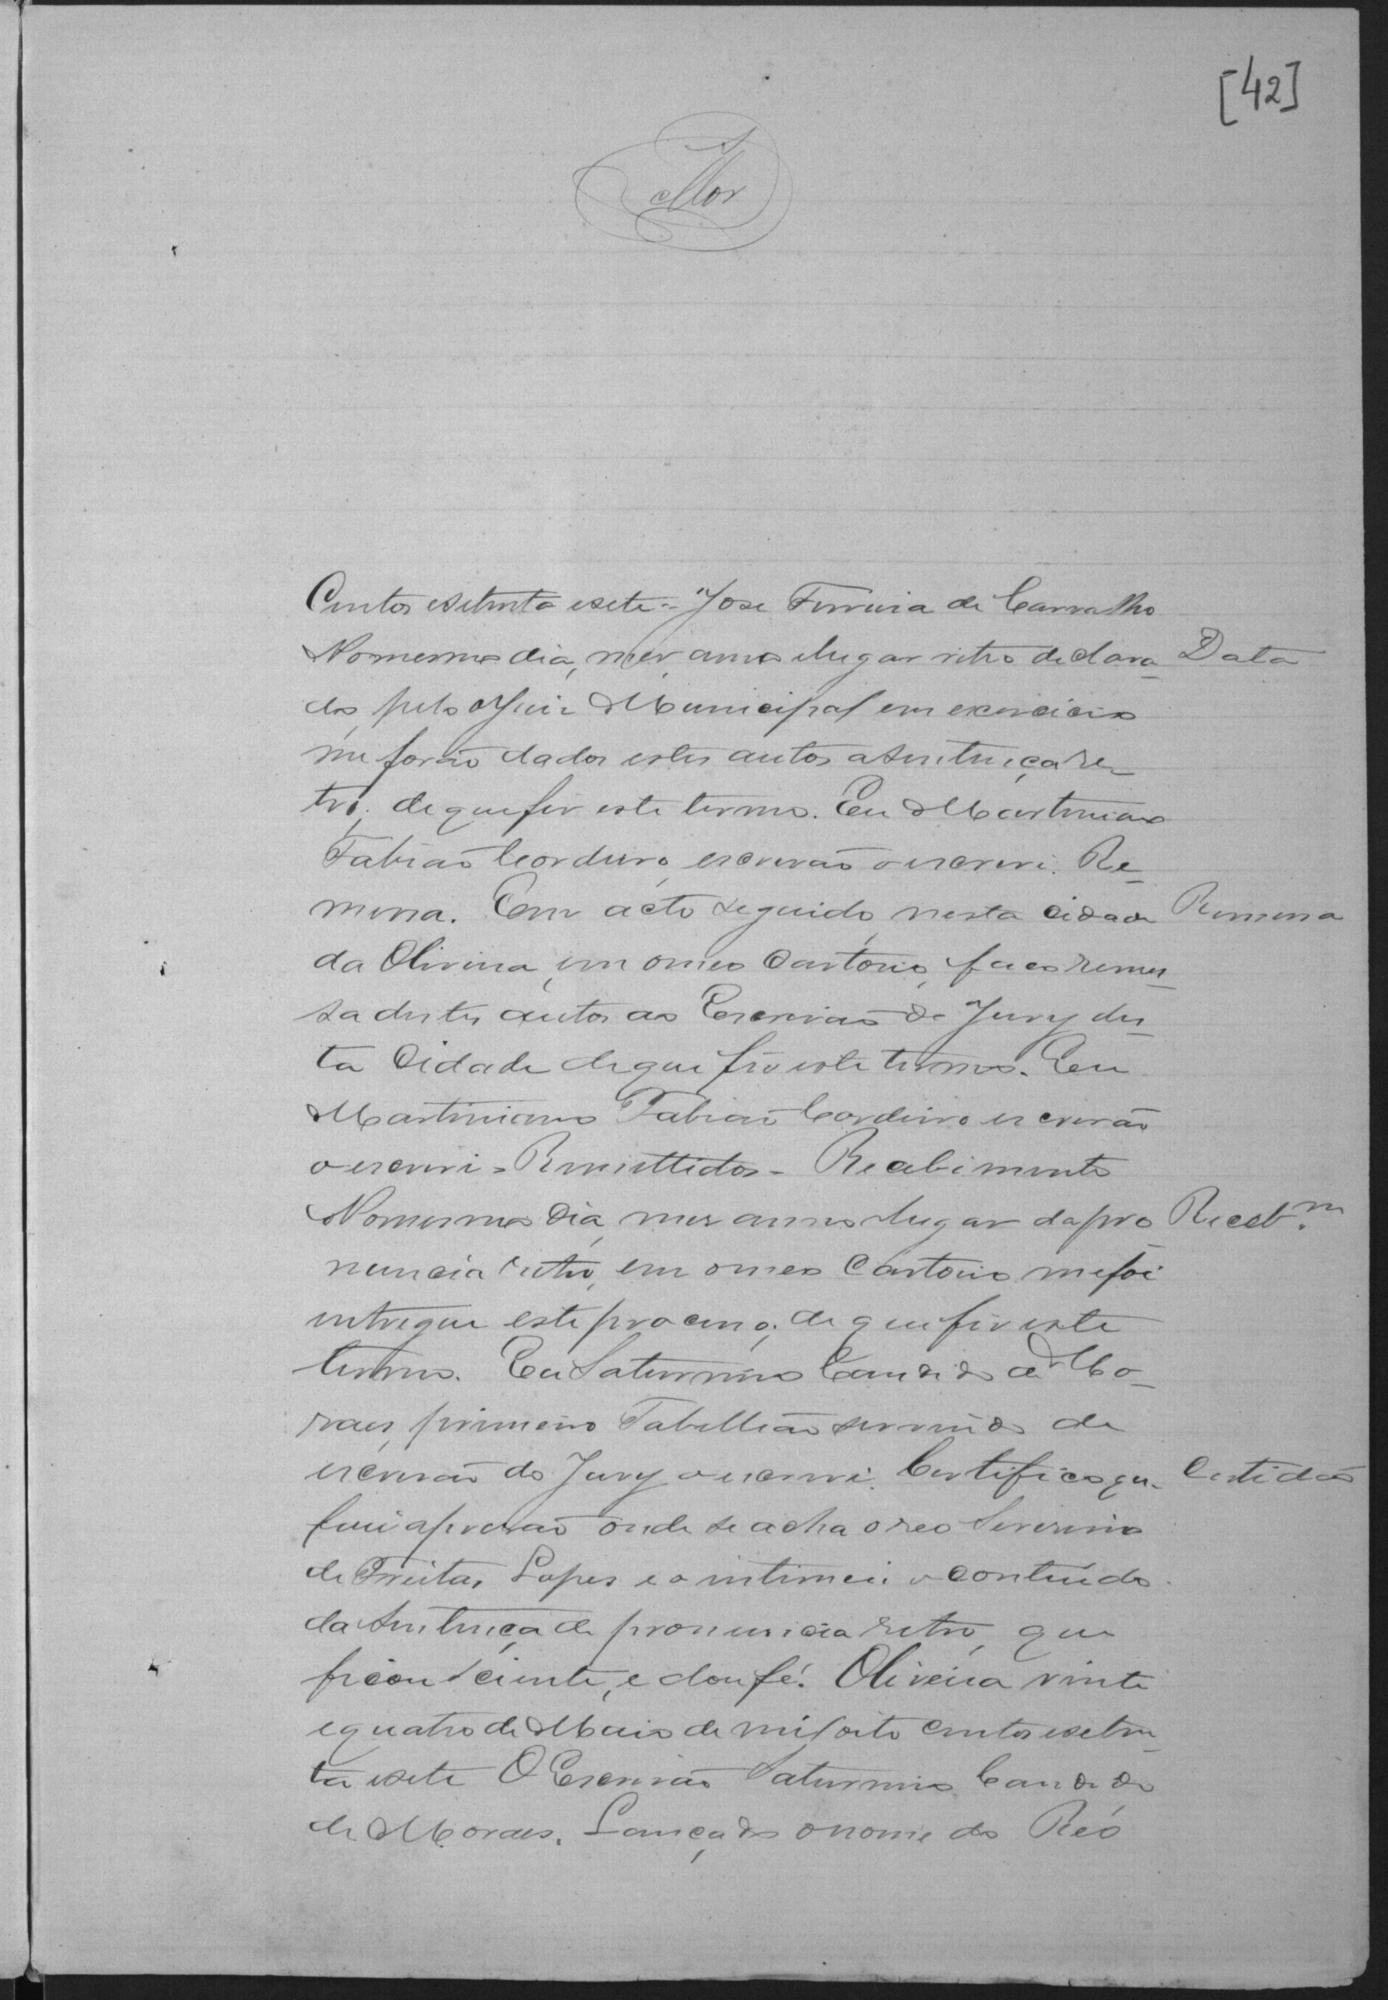 [42]
Mor
Centos esetenta esete - José Ferreira de Carvalho
No mesmo dia, mez, anno e lugar retro declara- Data
do pelo o Juiz Municipal em exercicio
me forão dados estes autos a sentença re-
tro, de que fiz este termo. Eu Martiniano
Fabião Cordeiro, escrivão o escrevi. Re-
messa. Em acto seguido, nesta cidade Remessa
da Oliveira, em o meo Cartorio, faço remes-
sa destes autos ao Escrivão do Jury des-
ta Cidade de que fis este termo. Eu
Martiniano Fabião Cordeiro escrivão
o escrevi - Remettidos - Recebimento
No mesmo dia, mez anno e lugar da pro- Receb.m
nuncia retro, em o meo Cartorio me foi
intregue este processo; de que fiz este
termo. Eu Saturnino Candido de Mo-
raes, primeiro Tabellião servindo de
escrivão do Jury o escrevi. Certifico que Certidão
fui a prisão onde se acha o reo Severino
de Freitas Lopes e o intimei o contêudo
da sentença de pronuncia retro, que
ficou sciente, e dou fé. Oliveira vinte
e quatro de Maio de mil oito centos e seten-
ta esete O Escrivão Saturnino Candido
de Moraes. Lançado o nome do Réo